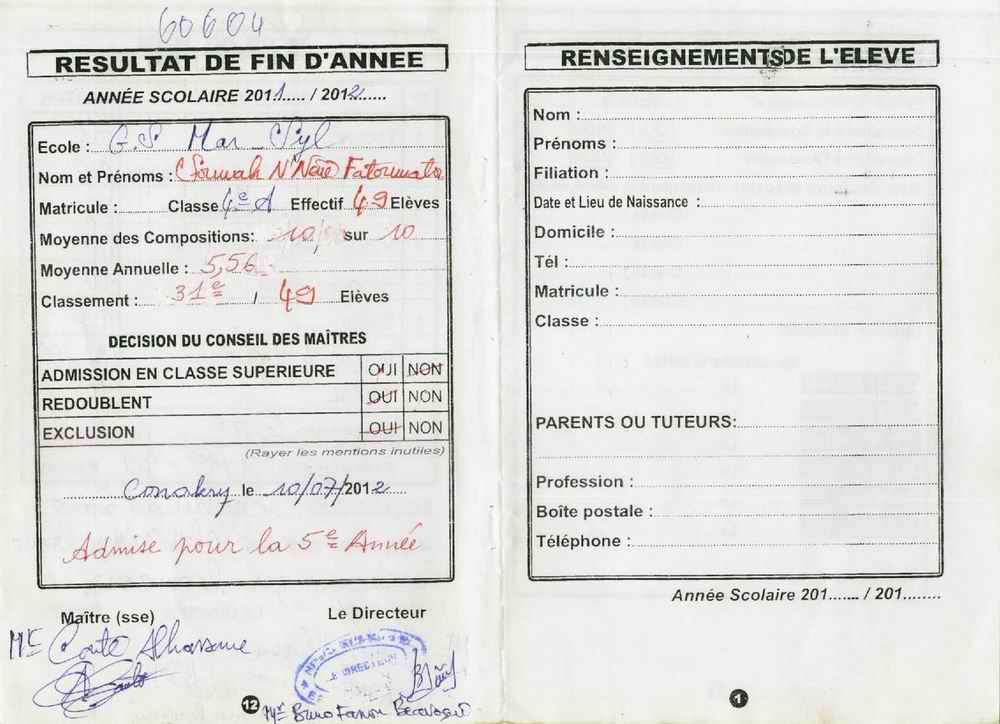 60604
RESULTAT DE FIN D'ANNEE
ANNÉE SCOLAIRE 2011..... / 2012.......
Ecole : G.S Mar_Syl
Nom et Prénoms : N'Néné Fatoumata
Matricule :.......... Classe 4e A Effectif 49 Elèves
Moyenne des Compositions: 10/ sur 10
Moyenne Annuelle : 5,56
Classement : 31e / 49 Elèves
DECISION DU CONSEIL DES MAÎTRES
ADMISSION EN CLASSE SUPERIEURE OUI NON
REDOUBLENT OUI NON
EXCLUSION OUI NON
(Rayer les mentions inutiles)
Conakry le 10/07/2012
Admise pour la 5e Année
Maître (sse) Le Directeur
Mr Conté Alhassane
LE DIRECTEUR
Mr Bruno Fanon Beavogui
12
RENSEIGNEMENTS DE L'ELEVE
Nom :
Prénoms :
Filiation :
Date et Lieu de Naissance :
Domicile :
Tél :
Matricule :
Classe :
PARENTS OU TUTEURS:
Profession :
Boîte postale :
Téléphone :
Année Scolaire 201...... / 201........
1